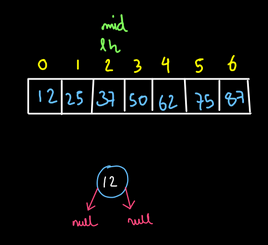 mid
lh
0 1 2 3 4 5 6
12 25 37 50 62 75 87
12
null null